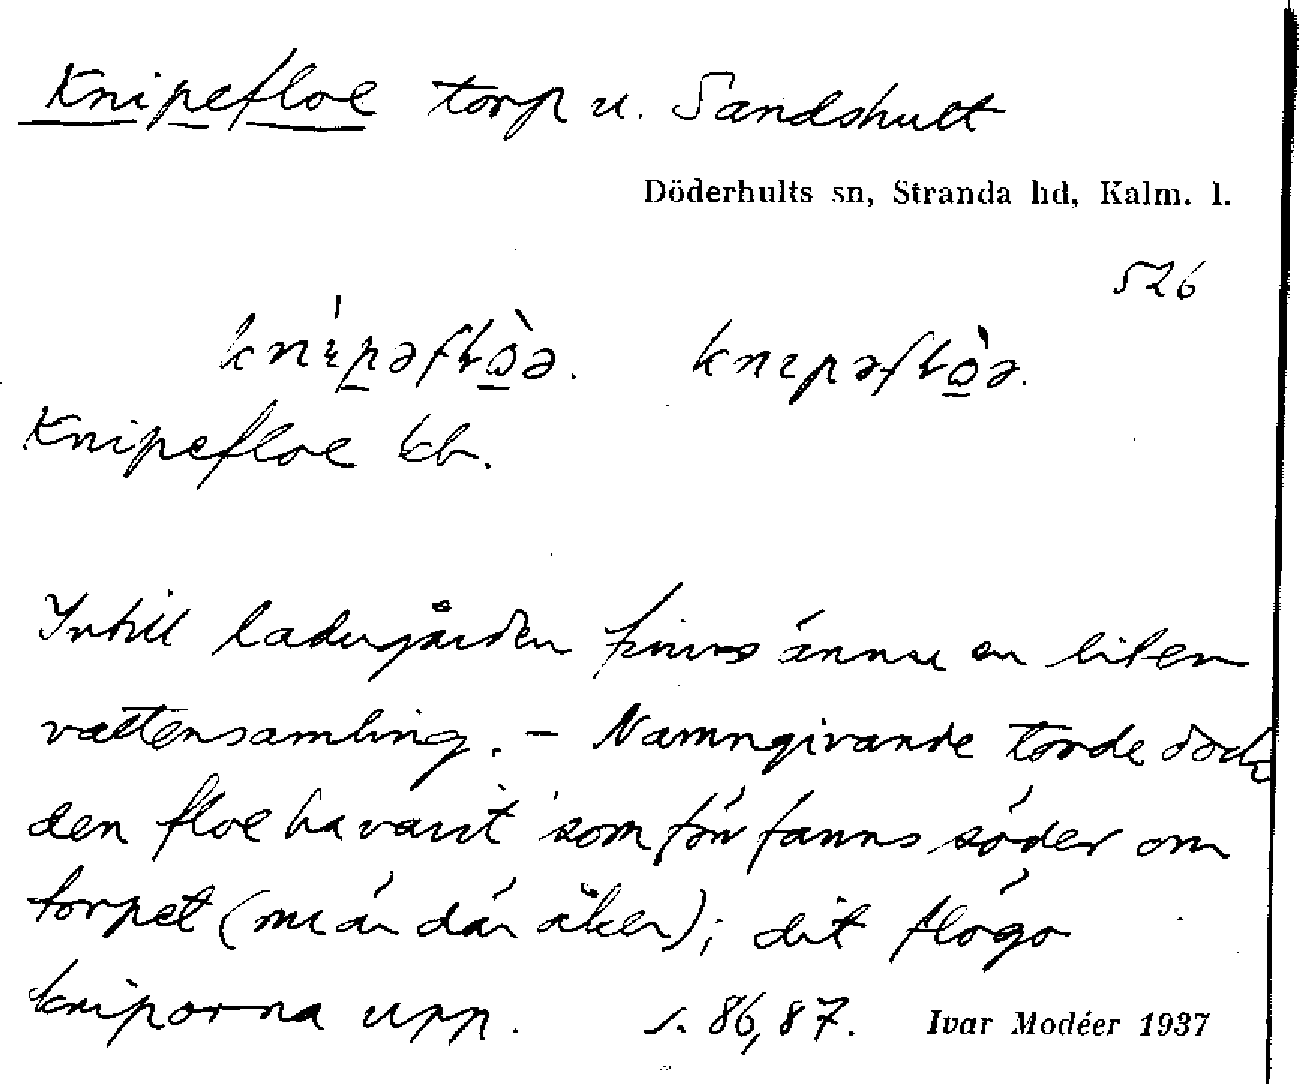 Knipefloe torp u. Sandshult
Döderhults sn, Stranda hd, Kalm. l.
526
Knipefloe kb.
Intill ladugården finns ännu en liten
vattensamling. – Namngivande torde dock
den floe ha varit som förr fanns söder om
torpet (nu är där åker); dit flögo
kniporna upp. s. 86, 87. Ivar Modéer 1937